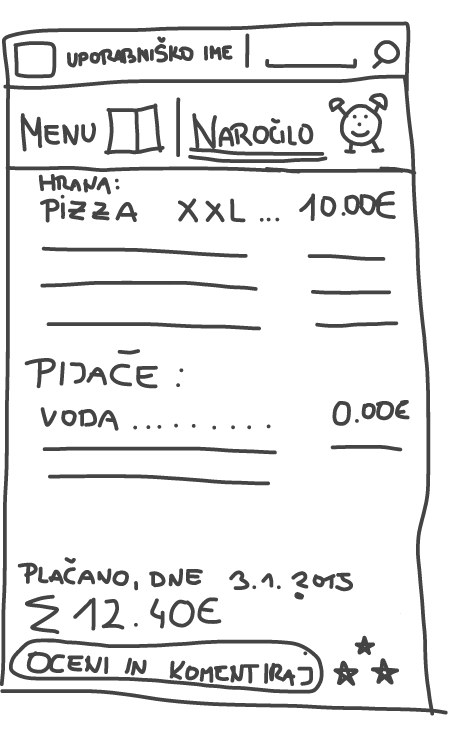 UPORABNIŠKO IME
MENU NAROČILO
HRANA:
PIZZA XXL ... 10.00€
PIJAČE :
VODA ......... 0.00€
PLAČANO, DNE 3.1. 2015
Σ 12.40€
OCENI IN KOMENTIRAJ